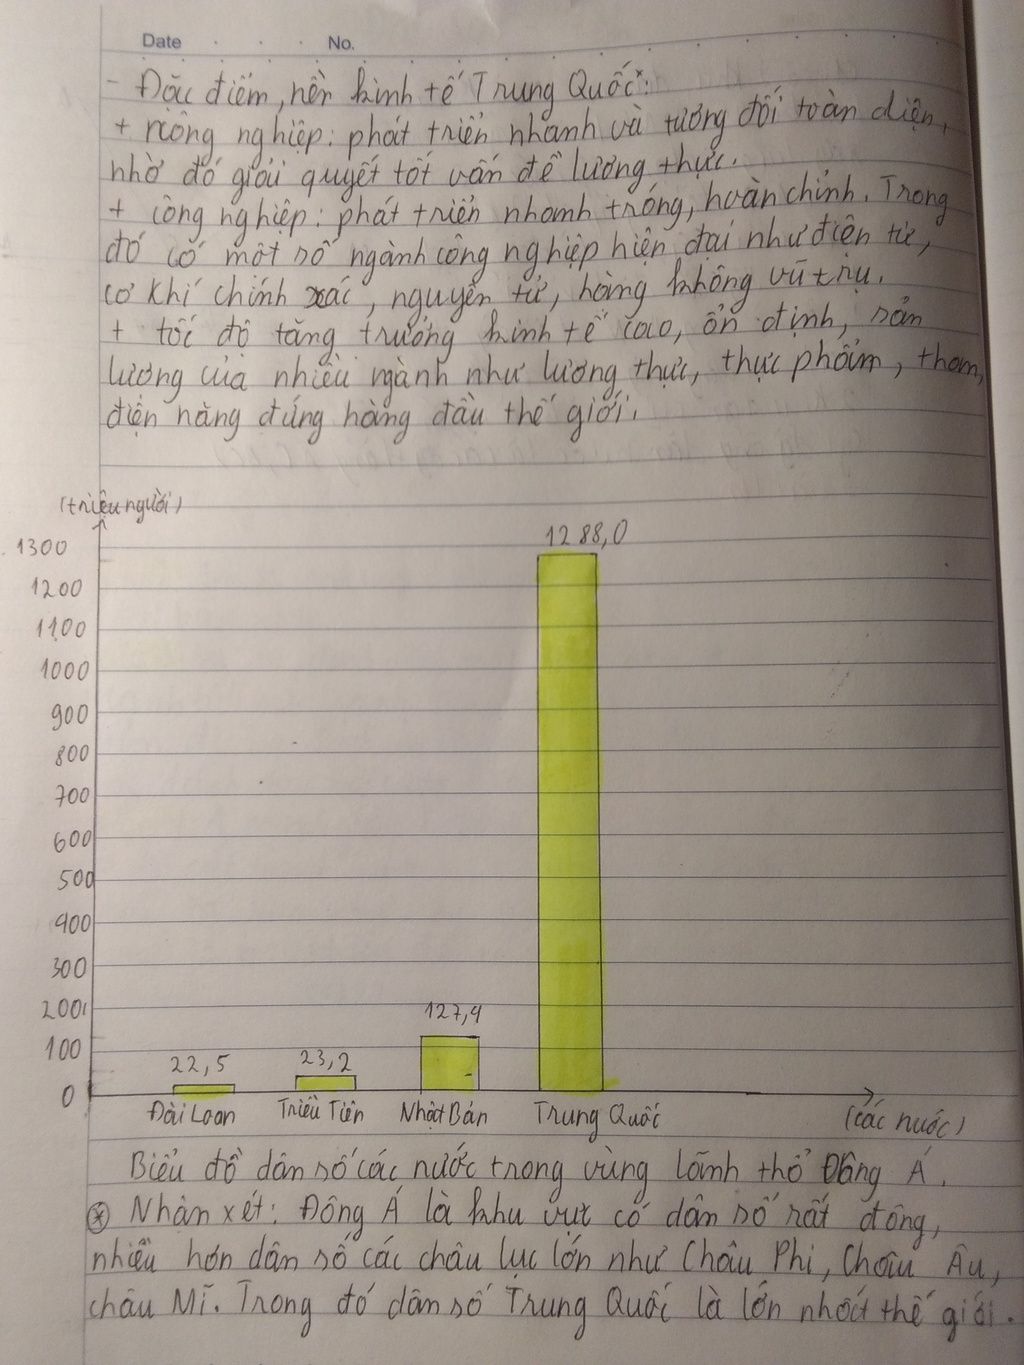 Date No.
- Đặc điểm, nền kinh tế Trung Quốc:
+ nông nghiệp: phát triển nhanh và tương đối toàn diện,
nhờ đó giải quyết tốt vấn đề lương thực.
+ công nghiệp: phát triển nhanh tróng, hoàn chỉnh. Trong
đó có một số ngành công nghiệp hiện đại như điện tử,
cơ khí chính xác, nguyên tử, hàng không vũ trụ.
+ tốc độ tăng trưởng kinh tế cao, ổn định, sản
lượng của nhiều ngành như lương thực, thực phẩm, than,
điện năng đứng hàng đầu thế giới.
(triệu người)
1300
1200
1100
1000
900
800
700
600
500
400
300
200
100
0
22,5
23,2
127,4
1288,0
Đài Loan Triều Tiên Nhật Bản Trung Quốc (các nước)
Biểu đồ dân số các nước trong vùng lãnh thổ Đông Á.
* Nhận xét: Đông Á là khu vực có dân số rất đông,
nhiều hơn dân số các châu lục lớn như Châu Phi, Châu Âu,
châu Mĩ. Trong đó dân số Trung Quốc là lớn nhất thế giới.